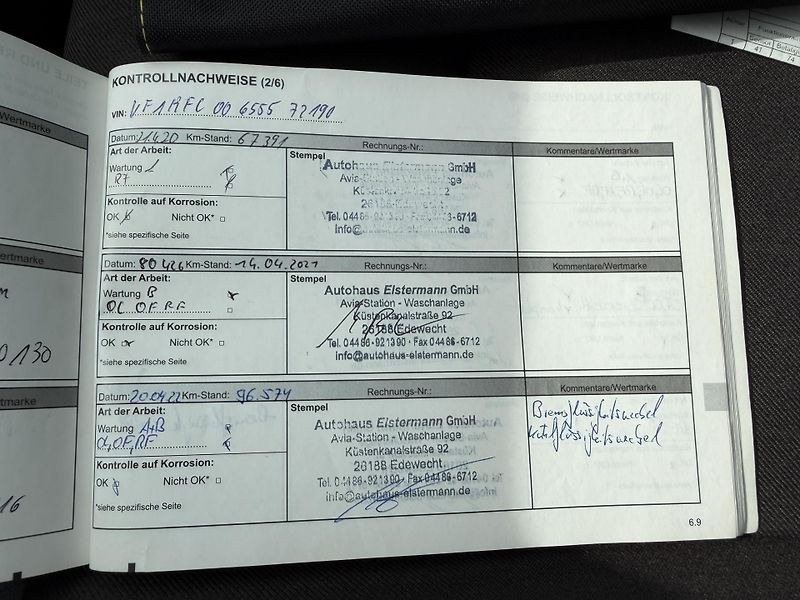 KONTROLLNACHWEISE (2/6)
VIN: VF1RFC 00 6555 72190
Datum: 21.4.20 Km-Stand: 67391 Rechnungs-Nr.: Kommentare/Wertmarke
Art der Arbeit:
Wartung
Kontrolle auf Korrosion:
OK Nicht OK*
*siehe spezifische Seite
Stempel
Autohaus Elstermann GmbH
Avia-Station - Waschanlage
Küstenkanalstraße 92
26188 Edewecht
Tel. 04486-921390 · Fax 04486-6712
info@autohaus-elstermann.de
Datum: 80426 Km-Stand: 14.04.2021 Rechnungs-Nr.: Kommentare/Wertmarke
Art der Arbeit:
Wartung B
ÖL ÖF RF
Kontrolle auf Korrosion:
OK Nicht OK*
*siehe spezifische Seite
Stempel
Autohaus Elstermann GmbH
Avia-Station - Waschanlage
Küstenkanalstraße 92
26188 Edewecht
Tel. 04486-921390 · Fax 04486-6712
info@autohaus-elstermann.de
Datum: 20.04.22 Km-Stand: 96.574 Rechnungs-Nr.: Kommentare/Wertmarke
Art der Arbeit:
Wartung A+B
Öl, ÖF, RF
Kontrolle auf Korrosion:
OK Nicht OK*
*siehe spezifische Seite
Stempel
Autohaus Elstermann GmbH
Avia-Station - Waschanlage
Küstenkanalstraße 92
26188 Edewecht
Tel. 04486-921390 · Fax 04486-6712
info@autohaus-elstermann.de
Bremsflüssigkeitswechsel
6.9